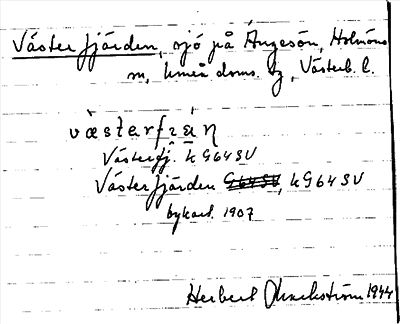 Västerfjärden, sjö på Ängesön, Holmöns
sn, Umeå doms. tg, Västerb. l.
västerfjäŋ
Västerfj. k G64SV
Västerfjärden G64SV, k G64SV
bykart. 1907
Herbert 1944